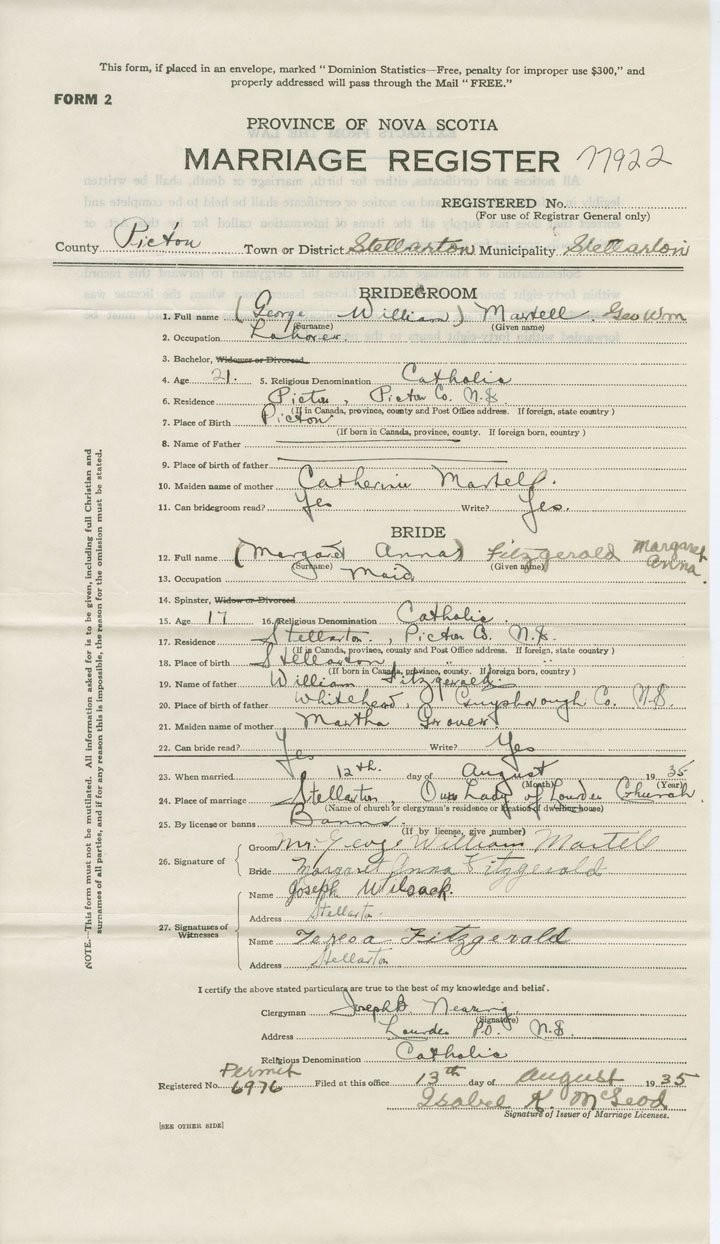 This form, if placed in an envelope, marked "Dominion Statistics—Free, penalty for improper use $300," and
properly addressed will pass through the Mail "FREE."
FORM 2
PROVINCE OF NOVA SCOTIA
MARRIAGE REGISTER 77922
REGISTERED No.
(For use of Registrar General only)
County Pictou Town or District Stellarton Municipality Stellarton
BRIDEGROOM
1. Full name (George William) Martell Geo Wm
(Surname) (Given name)
2. Occupation Laborer
3. Bachelor, Widower or Divorced
4. Age 21. 5. Religious Denomination Catholic
6. Residence Pictou, Pictou Co. N.S.
(If in Canada, province, county and Post Office address. If foreign, state country)
7. Place of Birth Pictou
(If born in Canada, province, county. If foreign born, country)
8. Name of Father
9. Place of birth of father
10. Maiden name of mother Catherine Martell.
11. Can bridegroom read? Yes Write? Yes.
BRIDE
12. Full name (Margaret Anna) Fitzgerald Margaret Anna.
(Surname) (Given name)
13. Occupation Maid
14. Spinster, Widow or Divorced
15. Age 17 16. Religious Denomination Catholic
17. Residence Stellarton, Pictou Co. N.S.
(If in Canada, province, county and Post Office address. If foreign, state country)
18. Place of birth Stellarton, " "
(If born in Canada, province, county. If foreign born, country)
19. Name of father William Fitzgerald.
20. Place of birth of father Whitehead, Guysborough Co. N.S.
21. Maiden name of mother Martha Grover
22. Can bride read? Yes Write? Yes
23. When married 12th. day of August 1935
(Month) (Year)
24. Place of marriage Stellarton, Our Lady of Lourdes Church
(Name of church or clergyman's residence or location of dwelling house)
25. By license or banns Banns
(If by license, give number)
26. Signature of
Groom Mr. George William Martell
Bride Margaret Anna Fitzgerald
27. Signatures of Witnesses
Name Joseph Wilsack.
Address Stellarton.
Name Teresa Fitzgerald
Address Stellarton
I certify the above stated particulars are true to the best of my knowledge and belief.
Clergyman Joseph B. Nearing
(Signature)
Address Lourdes P.O. N.S.
Religious Denomination Catholic
Permit
Registered No. 6976 Filed at this office 13th day of August 1935
Isabel K. McLeod
Signature of Issuer of Marriage Licenses.
[SEE OTHER SIDE]
NOTE.—This form must not be mutilated. All information asked for is to be given, including full Christian and
surnames of all parties, and if for any reason this is impossible, the reason for the omission must be stated.